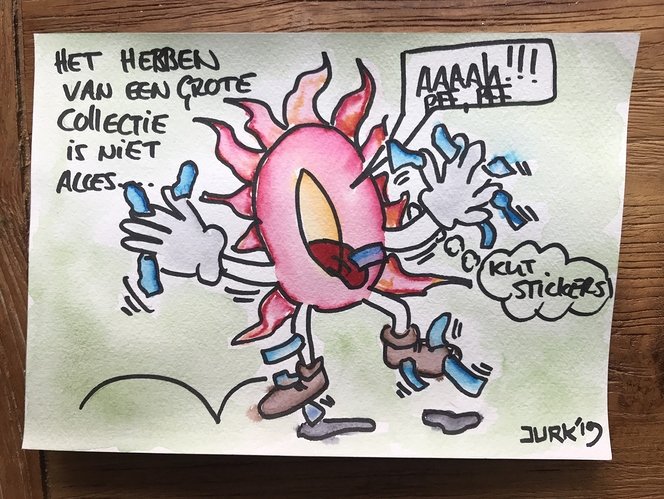 HET HEBBEN
VAN EEN GROTE
COLLECTIE
IS NIET
ALLES....
AAAAH!!!
KUT
STICKERS
JURK '19